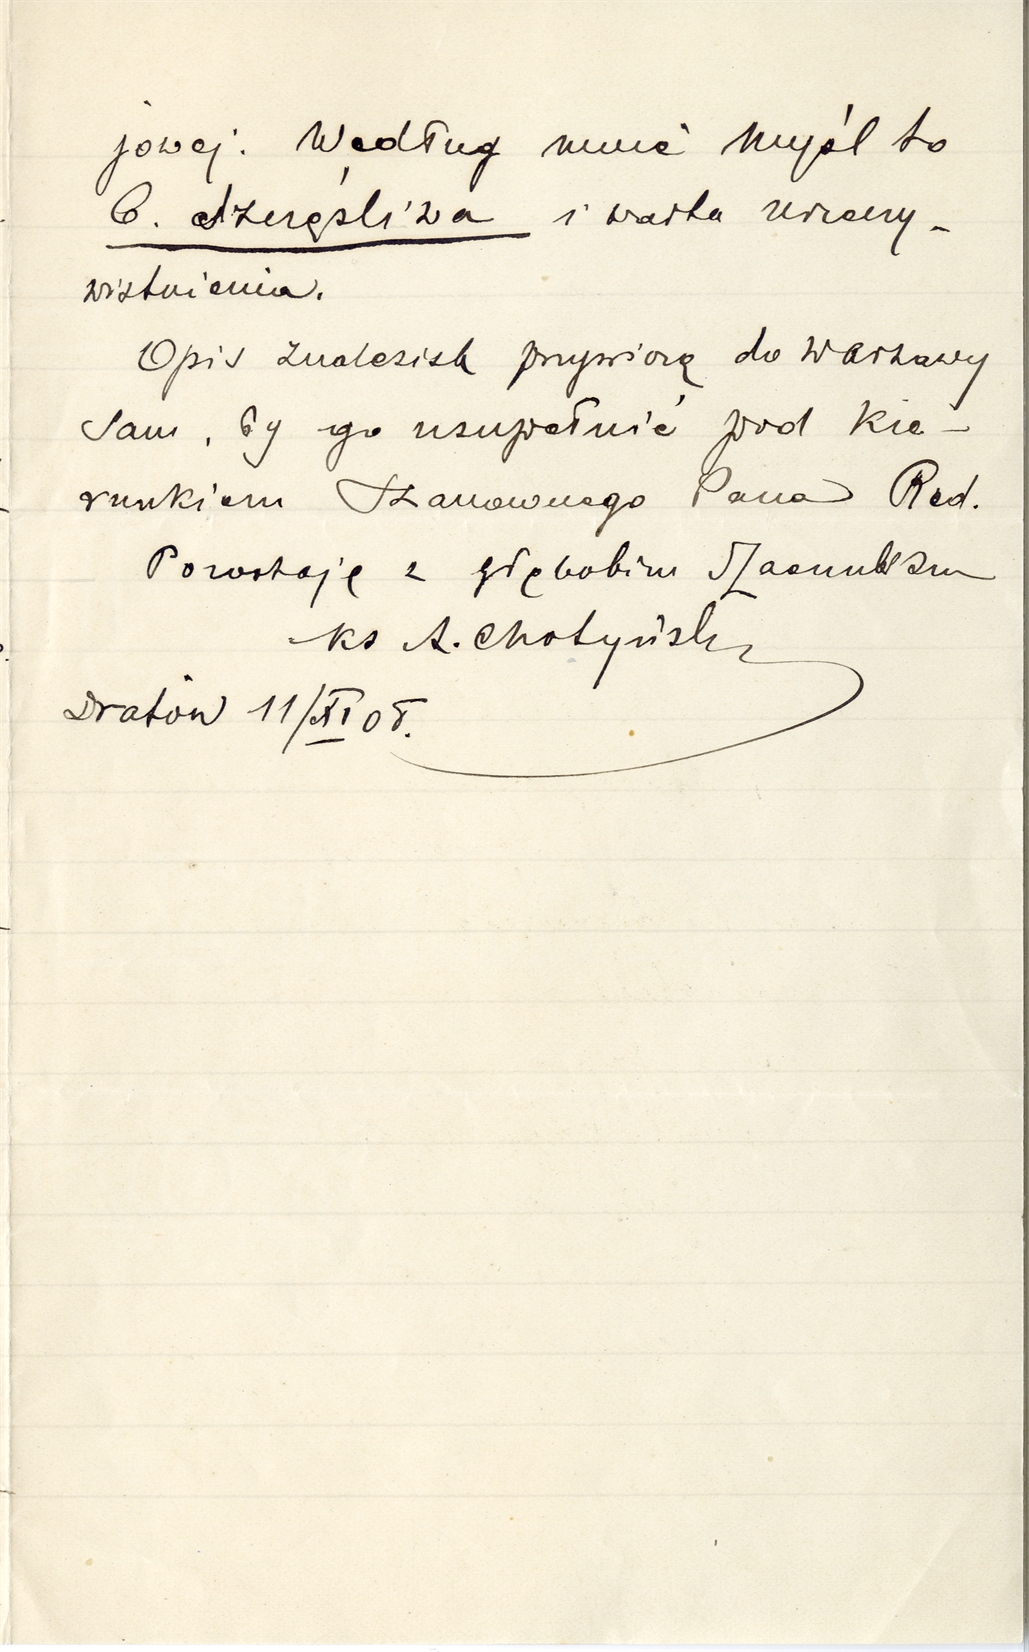 jowej. Według mnie myśl to
b. szczęśliwa i warta urzeczy-
wistnienia.
Opis znalezisk przywiozę do Warszawy
sam, by go uzupełnić pod kie-
runkiem Szanownego Pana Red.
Pozostaję z głębokim szacunkiem
ks A. Chotyński
Dratów 11/XI 08.